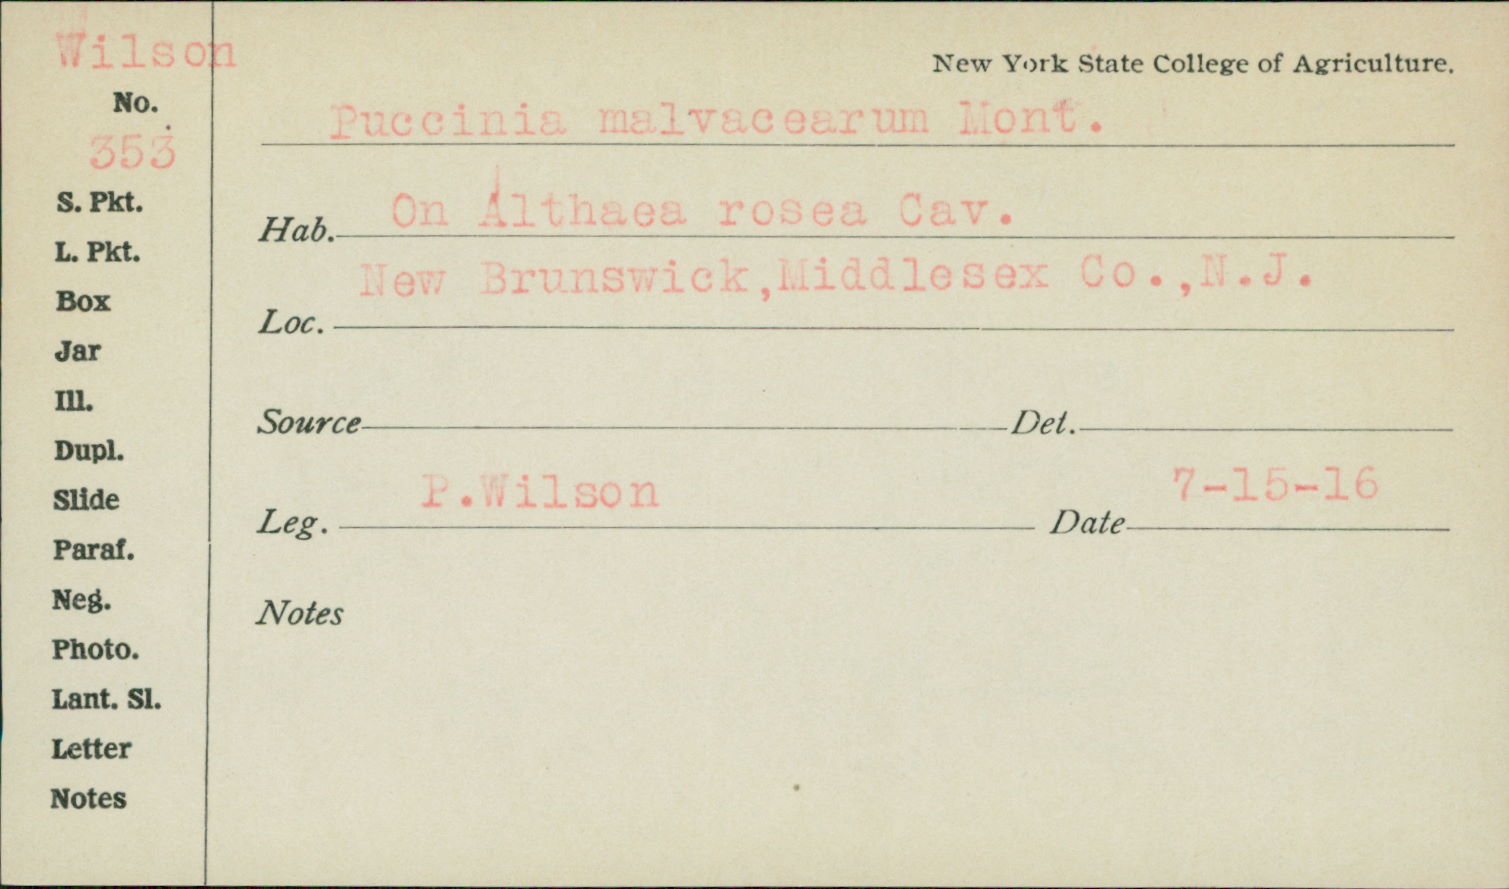 Wilson
New York State College of Agriculture.
No.
353
Puccinia malvacearum Mont.
S. Pkt.
Hab. On Althaea rosea Cav.
L. Pkt.
New Brunswick,Middlesex Co.,N.J.
Box
Loc.
Jar
Ill.
Source Det.
Dupl.
Slide
P.Wilson 7-15-16
Leg. Date
Paraf.
Neg.
Notes
Photo.
Lant. Sl.
Letter
Notes